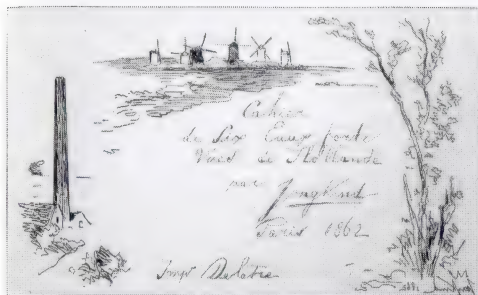 Cahier
de Six Eaux forte
Vues de Hollande
par Jongkind
Paris 1862
Impr Delatre